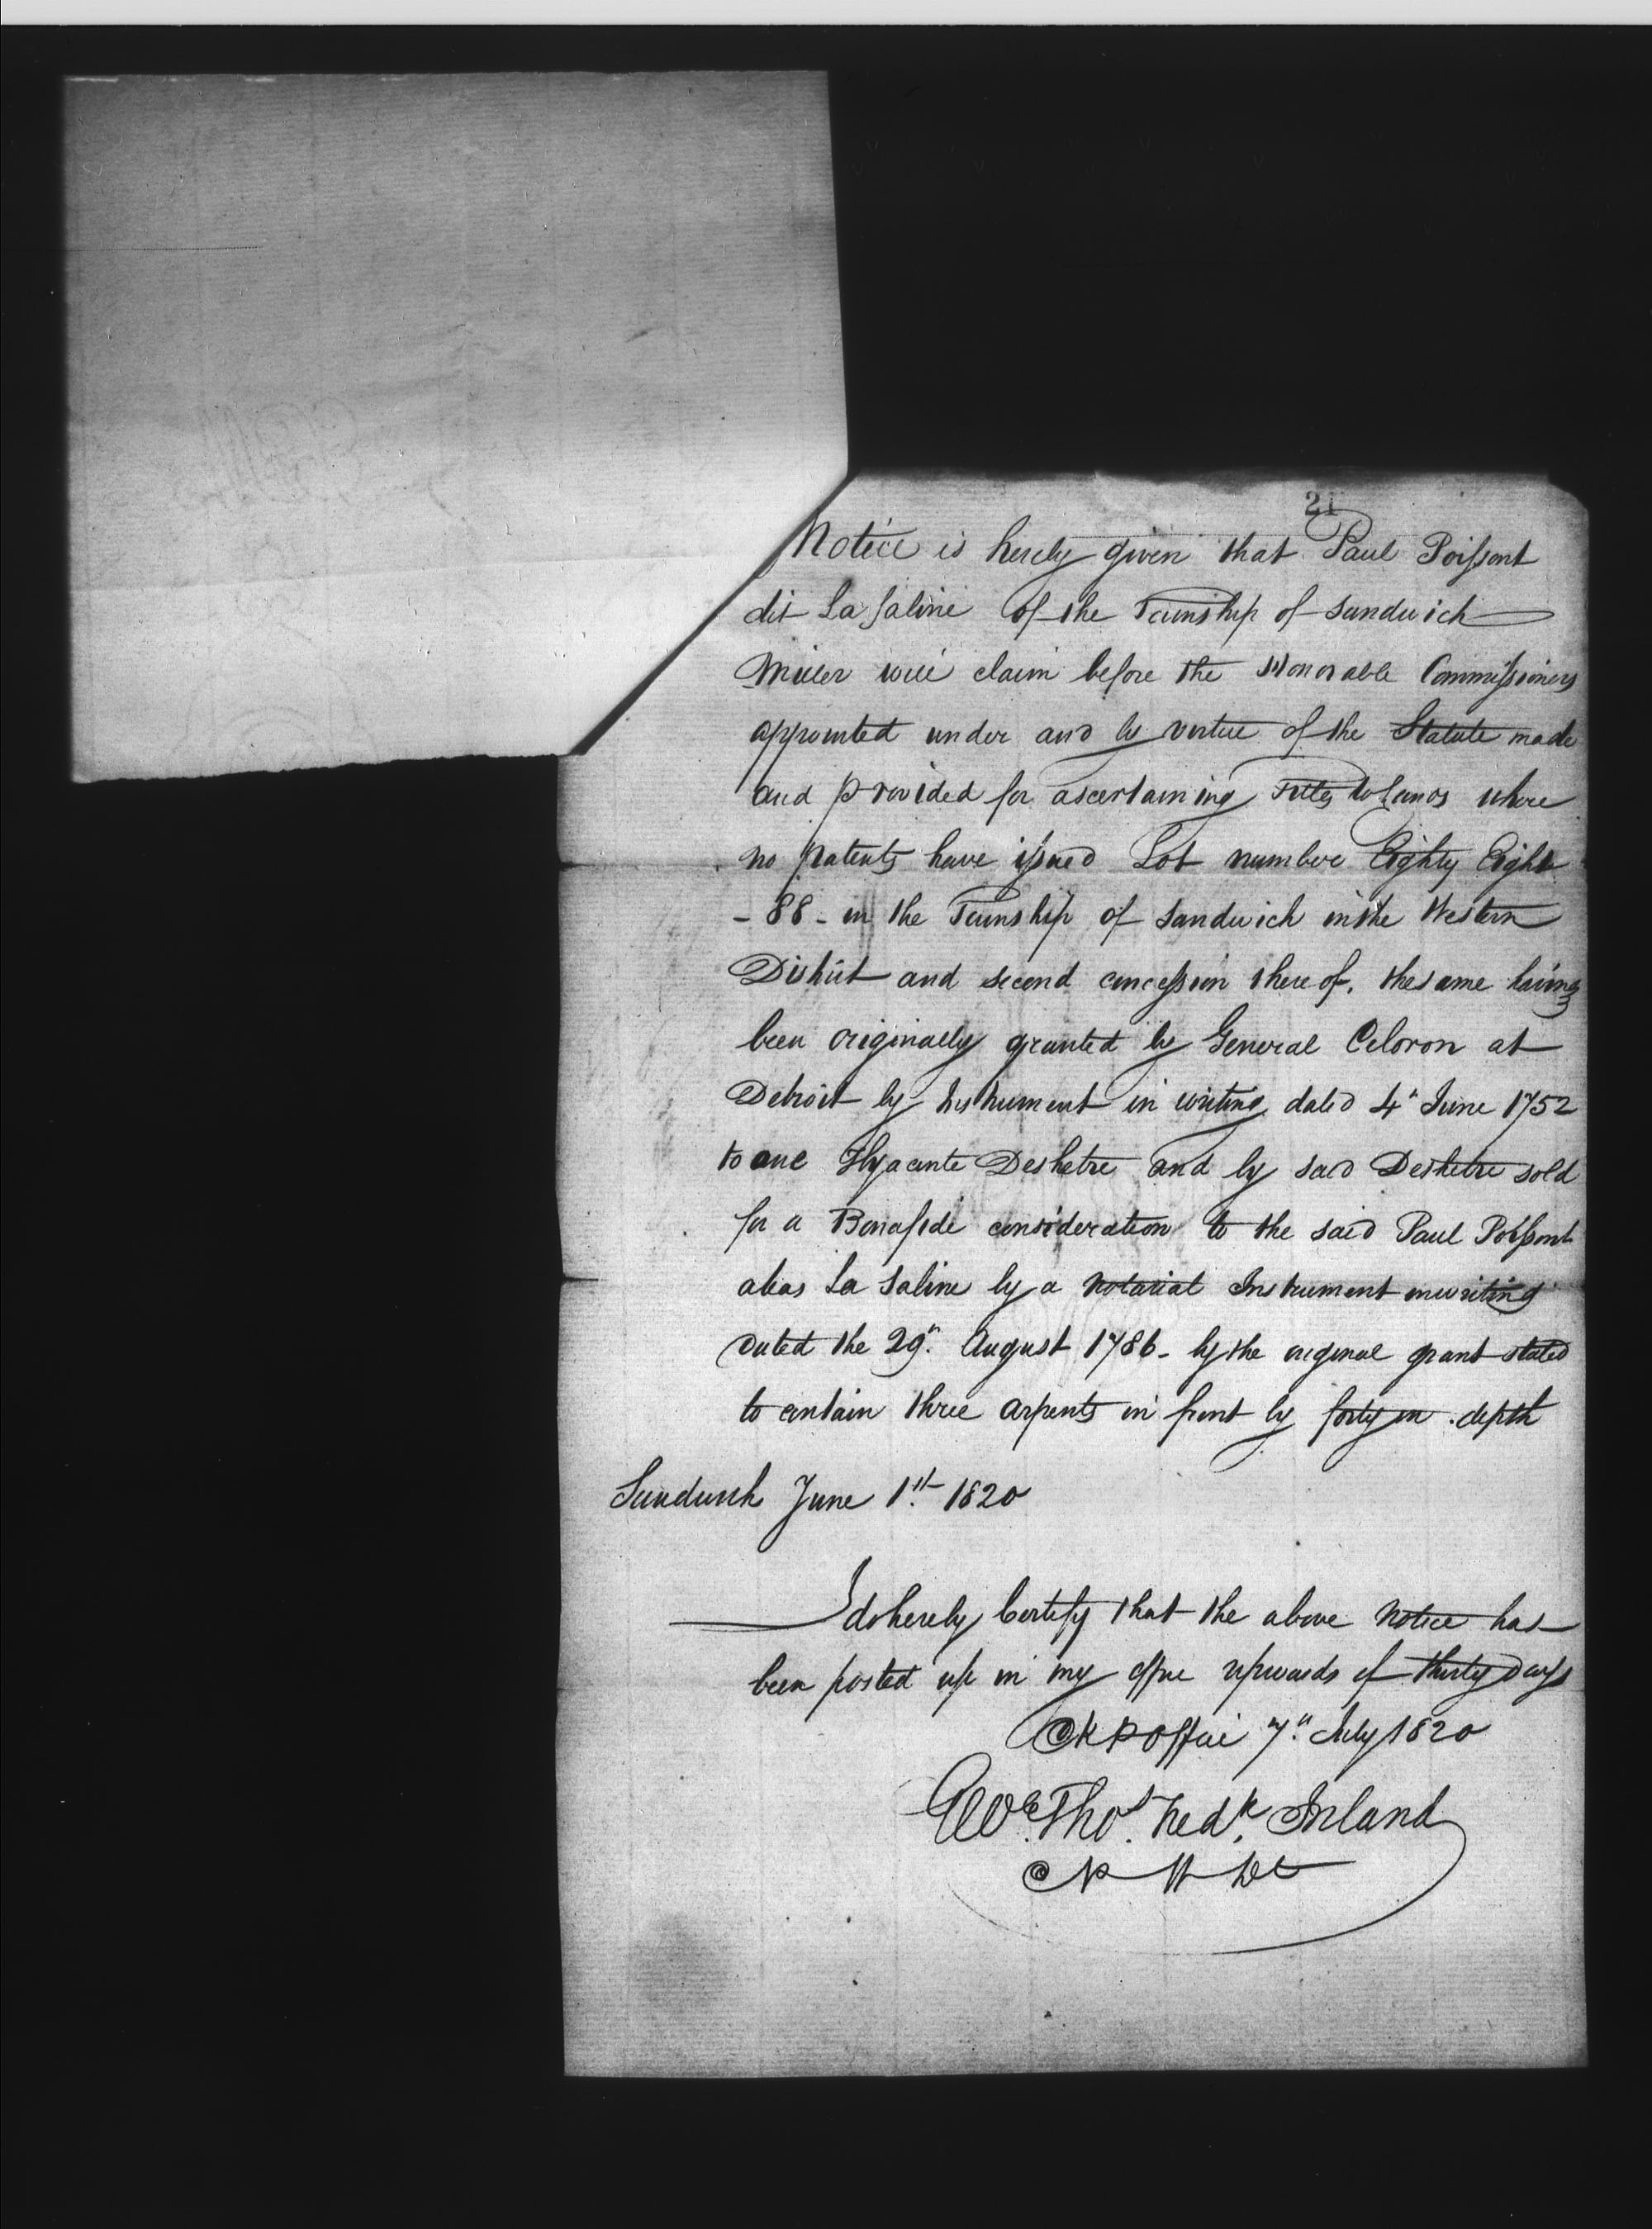 21
Notice is hereby given that Paul Poissont
dit La Saline of the Township of Sandwich
Miller will claim before the Honorable Commissioners
appointed under and by vertue of the Statute made
and provided for ascertaining Titles to Lands where
no patents have issued Lot number Eighty Eight
- 88 - in the Township of Sandwich in the Western
District and second concession thereof. the same having
been originally granted by General Celoron at
Detroit by Instrument in writing dated 4th June 1752
to one Hyacinte Deshetre and by said Deshetre sold
for a Bonafide consideration to the said Paul Poissont
alias La Saline by a notarial Instrument in writing
dated the 29th August 1786 - by the original grant stated
to contain three arpents in front by forty in depth
Sandwich June 1st 1820
I do hereby Certify that the above Notice has
been posted up in my office upwards of thirty Days
7th July 1820
Geoe Thos Fredk Ireland